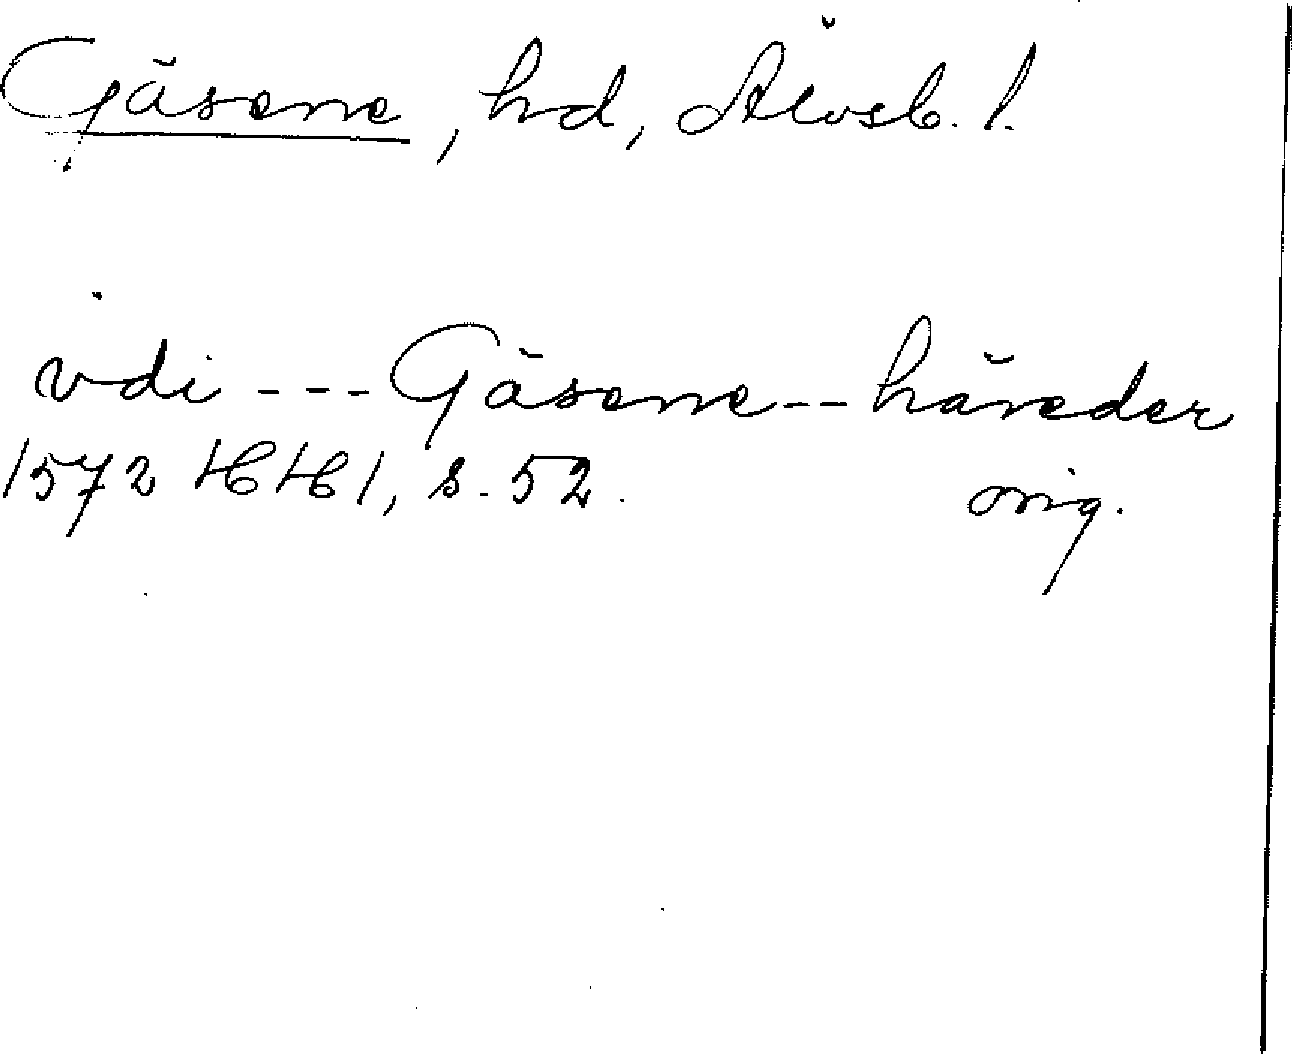 Gäsene, hd, Älvsb. l.
vdi --- Gäsene -- häreder
1572 HH 1, s. 52. orig.